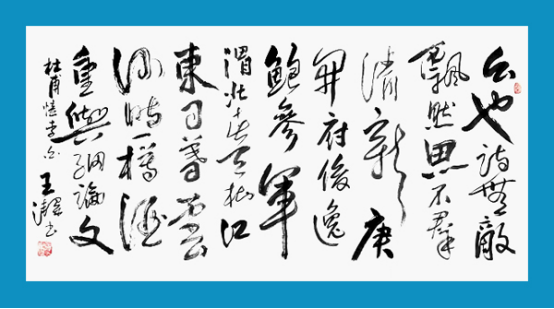 白也詩無敵
飄然思不羣
清新庾
開府俊逸
鮑參軍
渭北春天樹江
東日暮雲
何時一樽酒
重與細論文
杜甫憶李白
王 书